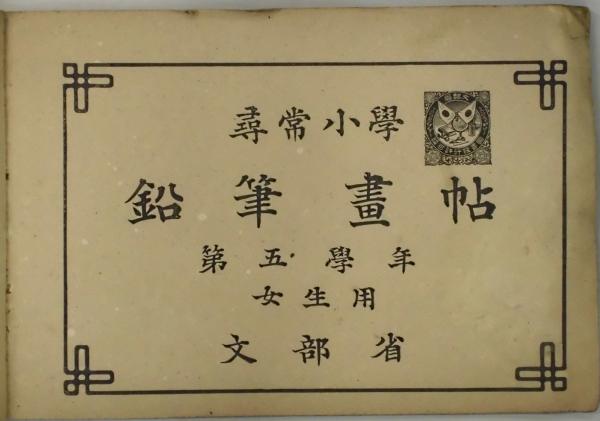 尋常小學
鉛筆畫帖
第五學年
女生用
文部省